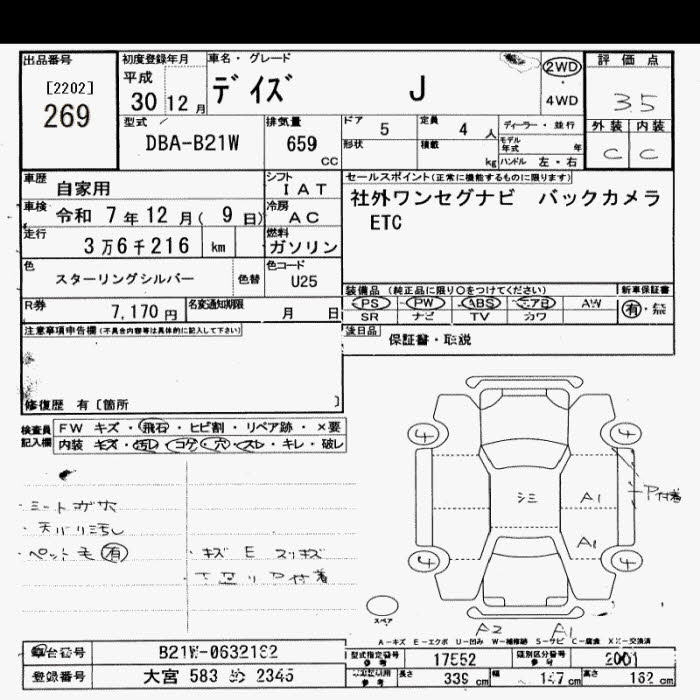 出品番号
[2202]
269
初度登録年月
平成
30 12 月
車名・グレード
デイズ J
2WD
・
4WD
評価点
3.5
外装 内装
C C
型式
DBA-B21W
排気量
659
CC
ドア 5
定員 4 人
形状
積載 kg
ディーラー・並行
モデル年式 年
ハンドル 左・右
車歴
自家用
シフト
IAT
車検
令和 7 年 12 月( 9 日)
冷房
AC
走行
3 万 6 千 216 km
燃料
ガソリン
色
スターリングシルバー
色替
色コード
U25
R券
7,170 円
名変通知期限
月 日
セールスポイント(正常に機能するものに限ります)
社外ワンセグナビ バックカメラ
ETC
装備品 (純正品に限り○をつけてください)
新車保証書
PS PW ABS エアB AW
有・無
SR ナビ TV カワ
後日品
保証書・取説
注意事項申告欄(不具合内容等は具体的に記入して下さい)
修復歴 有〔箇所 〕
検査員
記入欄
FW キズ・飛石・ヒビ割・リペア跡・×要
内装 キズ・汚れ・コゲ・穴・スレ・キレ・破レ
・シートコゲ穴
・天バリ汚し
・ペット毛 有
・キズ E スリキズ
下廻りP付着
4
4
シミ
A1
P付着
A1
4
4
スペア
A2
A1
A-キズ E-エクボ U-凹み W-補修跡 S-サビ C-腐食 XX-交換済
車台番号
B21W-0632182
登録番号
大宮 583 ぬ 2345
型式指定番号
参考
17552
類別区分番号
参考
2001
参考
長さ
339 cm
幅
147 cm
高さ
162 cm